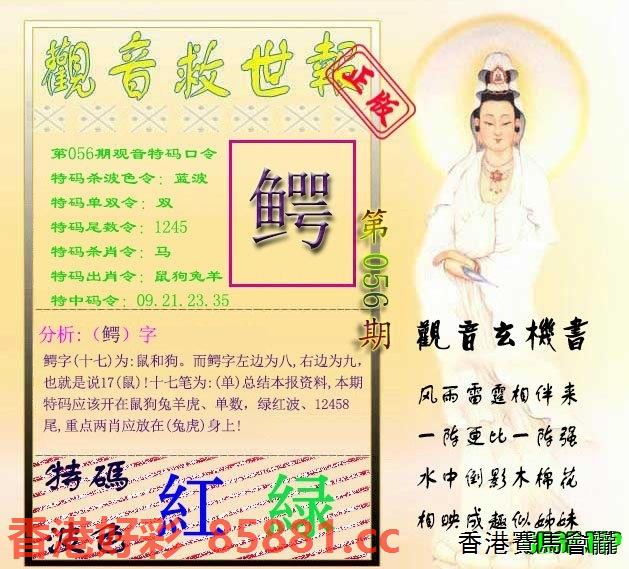 觀音救世報
正版
第056期观音特码口令
特码杀波色令：蓝波
特码单双令：双
特码尾数令：1245
特码杀肖令：马
特码出肖令：鼠狗兔羊
特中码令：09.21.23.35
鳄
第056期
分析:（鳄）字
鳄字(十七)为:鼠和狗。而鳄字左边为八,右边为九，
也就是说17(鼠)!十七笔为:(单)总结本报资料,本期
特码应该开在鼠狗兔羊虎、单数，绿红波、12458
尾,重点两肖应放在(兔虎)身上!
特碼
波色
紅 綠
觀音玄機書
风雨雷霆相伴来
一阵更比一阵强
水中倒影木棉花
相映成趣似姊妹
香港好彩 85881.cc
香港賽馬會